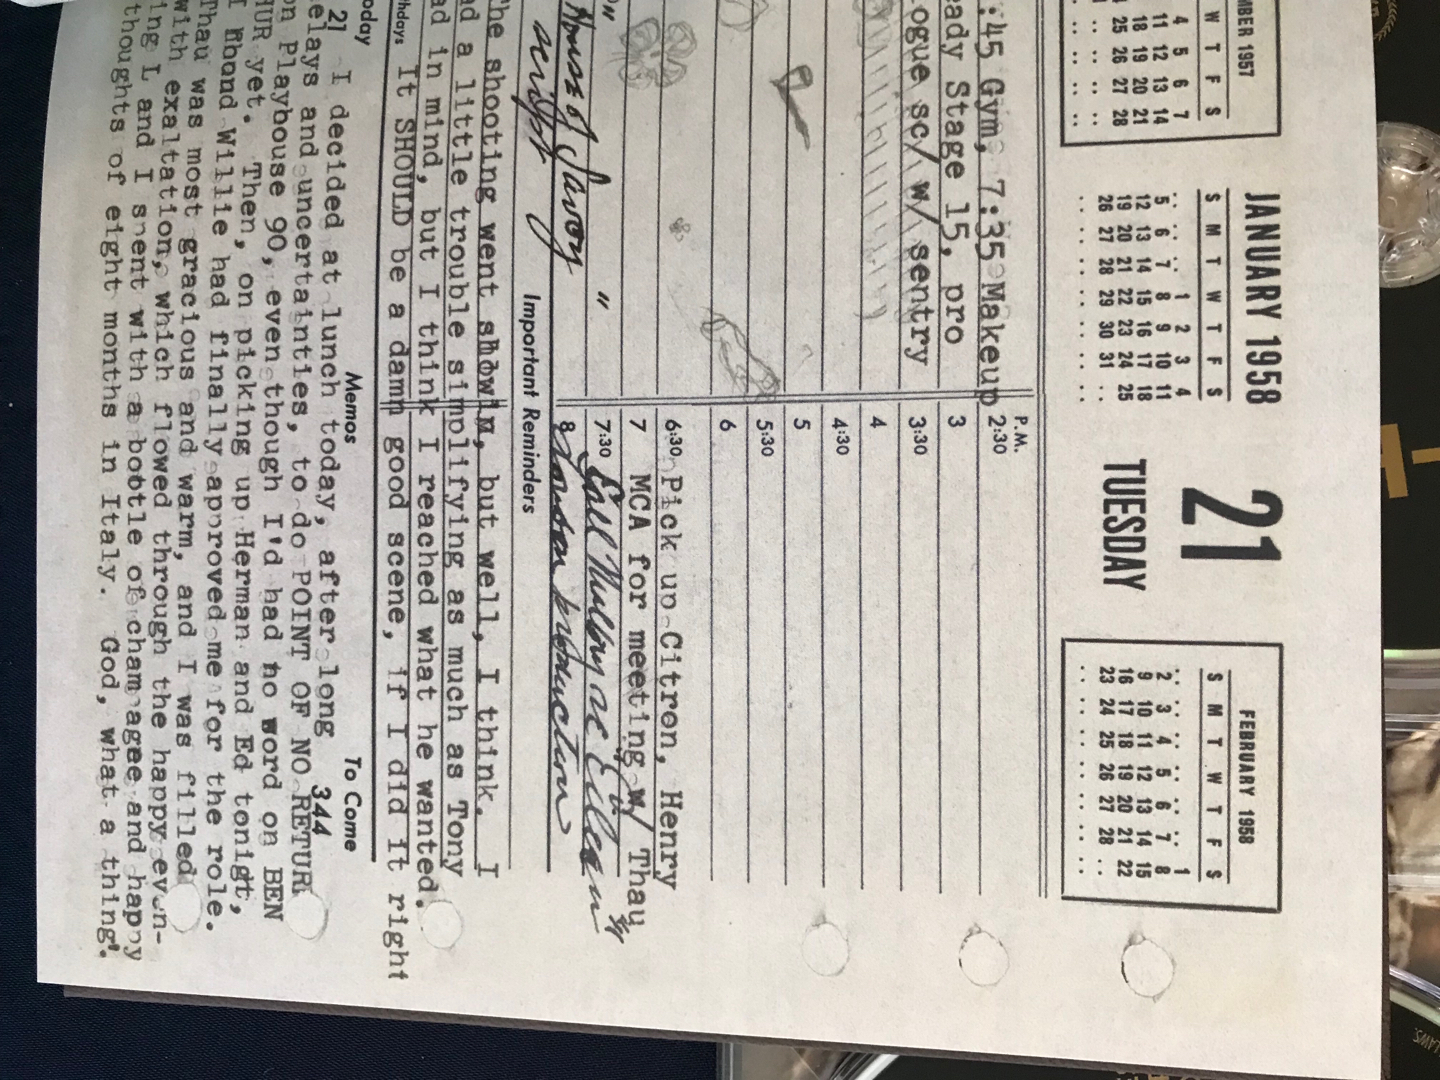 MBER 1957
W T F S
4 5 6 7
11 12 13 14
18 19 20 21
25 26 27 28
.. .. .. ..
JANUARY 1958
S M T W T F S
.. .. .. 1 2 3 4
5 6 7 8 9 10 11
12 13 14 15 16 17 18
19 20 21 22 23 24 25
26 27 28 29 30 31 ..
21
TUESDAY
FEBRUARY 1958
S M T W T F S
.. .. .. .. .. .. 1
2 3 4 5 6 7 8
9 10 11 12 13 14 15
16 17 18 19 20 21 22
23 24 25 26 27 28 ..
:45 Gym, 7:35 Makeup
eady Stage 15, pro
ogue sc/ w/ sentry
P.M.
2:30
3
3:30
4
4:30
5
5:30
6
6:30 Pick up Citron, Henry
7 MCA for meeting w/ Thau
7:30 Call
8 production
House of Savoy "
script
Important Reminders
The shooting went slowly, but well, I think. I
ad a little trouble simplifying as much as Tony
ad in mind, but I think I reached what he wanted.
It SHOULD be a damn good scene, if I did It right
thdays
oday
Memos
To Come
21 I decided at lunch today, after long 344
elays and uncertainties, to do POINT OF NO RETURN
on Playhouse 90, even though I'd had no word on BEN
HUR yet. Then, on picking up Herman and Ed tonigt,
I found Willie had finally approved me for the role.
Thau was most gracious and warm, and I was filled
with exaltation, which flowed through the happy even-
ing L and I spent with a bottle of champagee and happy
thoughts of eight months in Italy. God, what a thing.